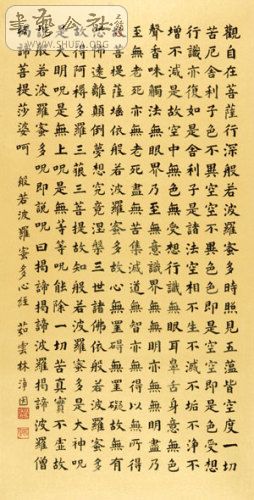 書藝公社
WWW.SHUFA.ORG
觀自在菩薩行深般若波羅蜜多時照見五蘊皆空度一切
苦厄舍利子色不異空空不異色色即是空空即是色受想
行識亦復如是舍利子是諸法空相不生不滅不垢不淨不
增不減是故空中無色無受想行識無眼耳鼻舌身意無色
聲香味觸法無眼界乃至無意識界無無明亦無無明盡乃
至無老死亦無老死盡無苦集滅道無智亦無得以無所得
故菩提薩埵依般若波羅蜜多故心無罣礙無罣礙故無有
恐怖遠離顛倒夢想究竟涅槃三世諸佛依般若波羅蜜多
故得阿耨多羅三藐三菩提故知般若波羅蜜多是大神呪
是大明呪是無上呪是無等等呪能除一切苦真實不虛故
說般若波羅蜜多呪即說呪曰揭諦揭諦波羅揭諦波羅僧
揭諦菩提莎婆呵 般若波羅蜜多心經 茹雲林淨因